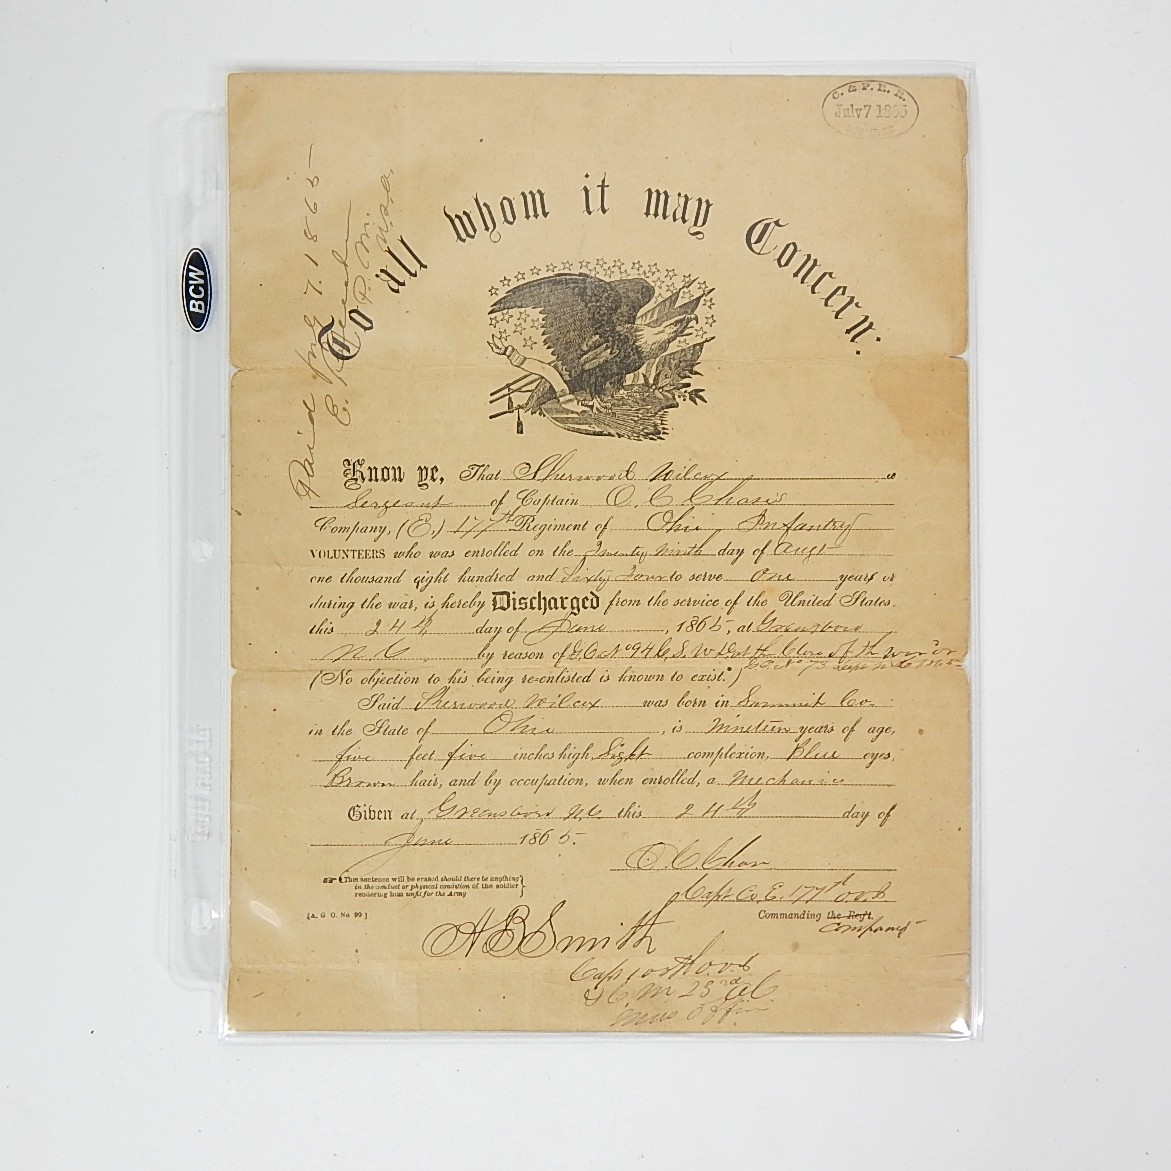 C. & P. R. R.
July 7 1865
To all whom it may Concern:
Paid July 7. 1865
E.
P. M.
U.S.A.
BCW
Know ye, That Sherwood Wilcox a
Sergeant of Captain O. C. Chase's
Company, (E,) 177th Regiment of Ohio Infantry
VOLUNTEERS who was enrolled on the Twenty Ninth day of Augt
one thousand eight hundred and Sixty Four to serve One years or
during the war, is hereby Discharged from the service of the United States,
this 24th day of June, 1865, at Greensboro
N. C by reason of G.O. No 94 C.S. War Dept the Close of the war or
(No objection to his being re-enlisted is known to exist.*)
Said Sherwood Wilcox was born in Summit Co.
in the State of Ohio, is Nineteen years of age,
five feet five inches high, Light complexion, Blue eyes,
Brown hair, and by occupation, when enrolled, a Mechanic
Given at Greensboro N.C. this 24th day of
June 1865.
O. C. Chase
Capt Co. E. 177th O.V.I.
Commanding the Reg't.
Company
☞ {This sentence will be erased should there be anything
in the conduct or physical condition of the soldier
rendering him unfit for the Army}
[A. G. O. No 99]
A B Smith
Capt O.V.I.
& C. M. 23rd A C
Mus Officer